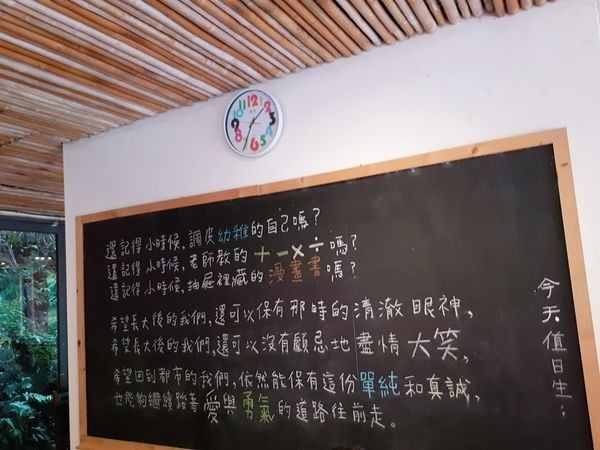 還記得小時候,調皮幼稚的自己嗎?
還記得小時候,老師教的+-×÷嗎?
還記得小時候,抽屜裡藏的漫畫書嗎?
希望長大後的我們,還可以保有那時的清澈眼神,
希望長大後的我們,還可以沒有顧忌地盡情大笑,
希望回到都市的我們,依然能保有這份單純和真誠,
也能夠繼續踏著愛與勇氣的道路往前走。
今天值日生: